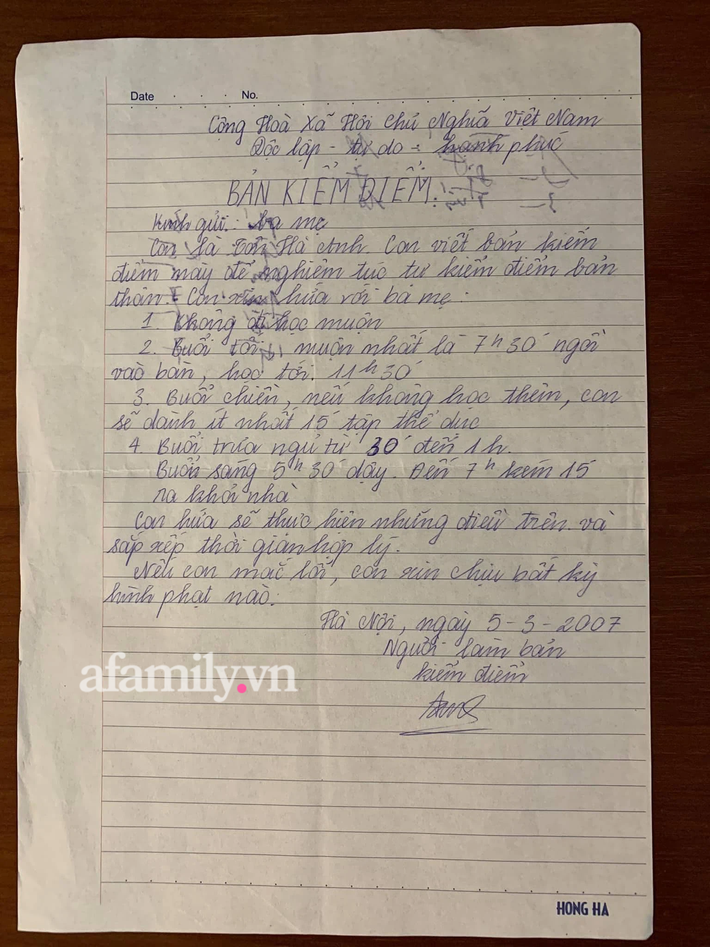 Date No.
Cộng Hoà Xã Hội Chủ Nghĩa Việt Nam
Độc lập - tự do - hạnh phúc
BẢN KIỂM ĐIỂM.
Kính gửi: ba mẹ
Con là Hà Anh. Con viết bản kiểm
điểm này để nghiêm túc tự kiểm điểm bản
thân. Con xin hứa với bố mẹ:
1. Không đi học muộn
2. Buổi tối, muộn nhất là 7h30' ngồi
vào bàn, học tới 11h30'
3. Buổi chiều, nếu không học thêm, con
sẽ dành ít nhất 15' tập thể dục
4. Buổi trưa ngủ từ 30' đến 1h.
Buổi sáng 5h30' dậy. Đến 7h kém 15
ra khỏi nhà
Con hứa sẽ thực hiện những điều trên và
sắp xếp thời gian hợp lý.
Nếu con mắc lỗi, con xin chịu bất kỳ
hình phạt nào.
Hà Nội, ngày 5-3-2007
Người làm bản
kiểm điểm
afamily.vn
HONG HA